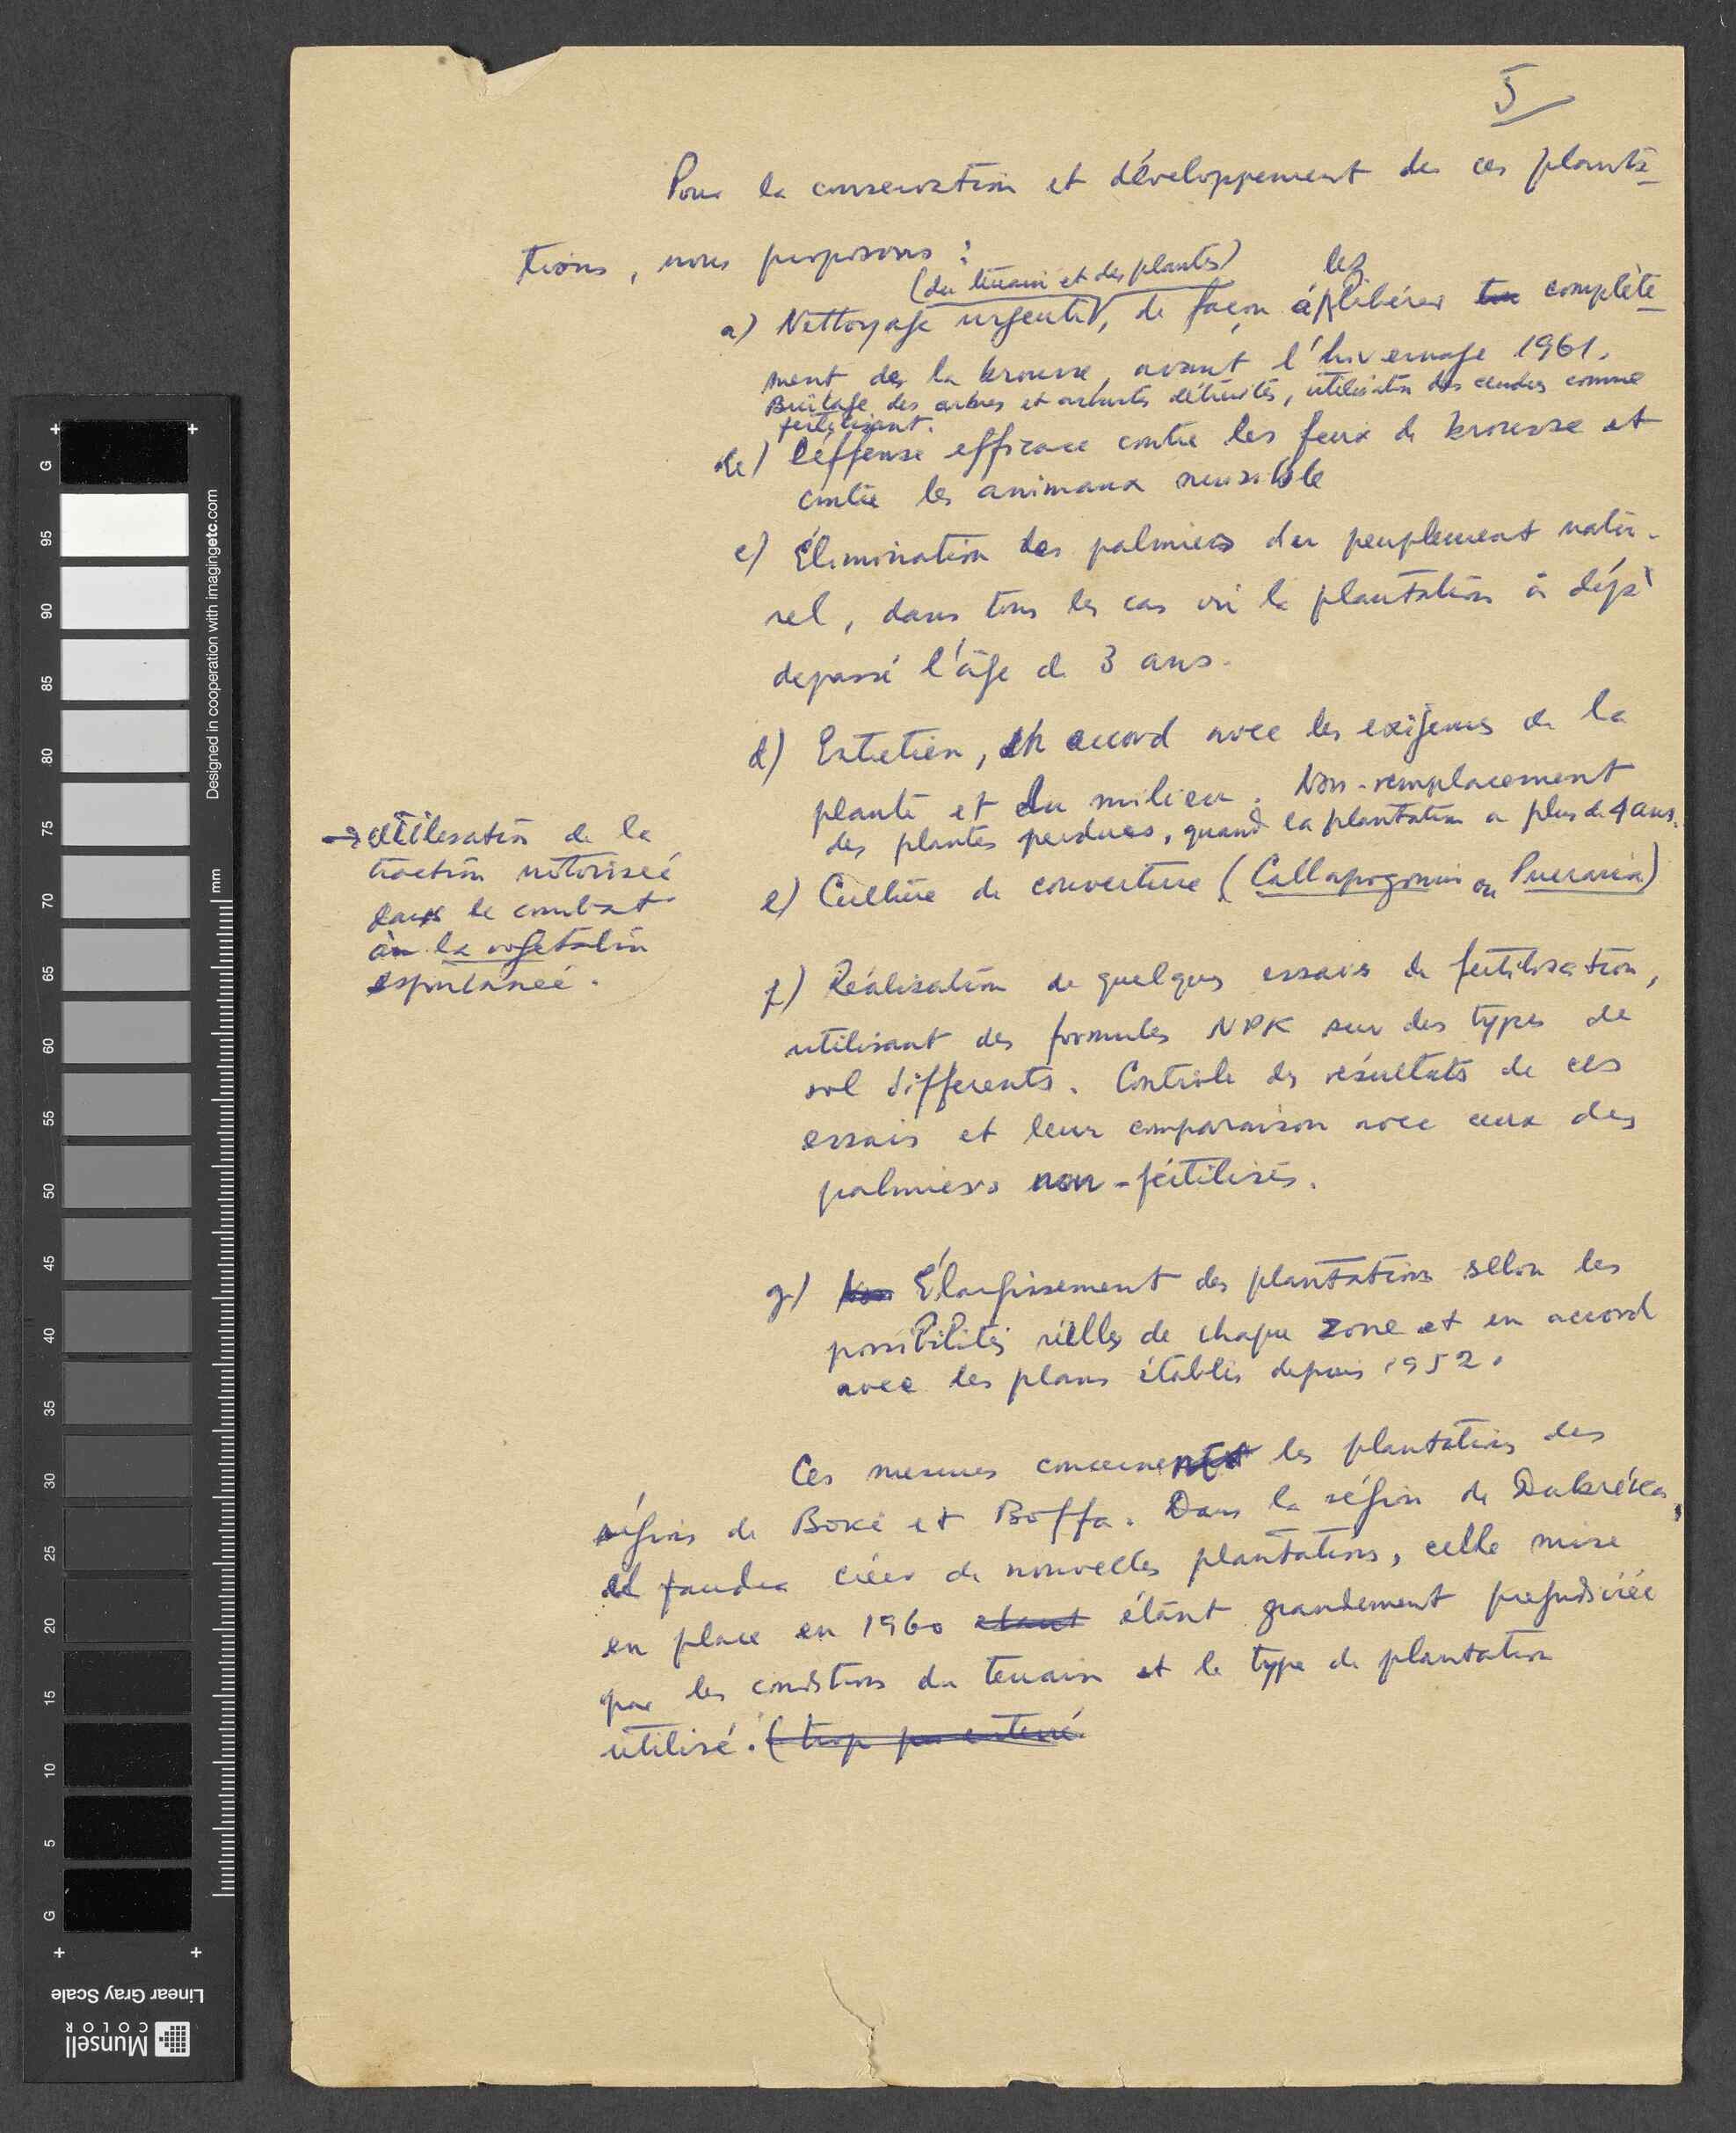 5
Pour la conservation et développement de ces planta-
tions, nous proposons :
(du terrain et des plantes) les
a) Nettoyage urgent, de façon à libérer complète-
ment de la brousse, avant l'hivernage 1961.
Brûlage des arbres et arbustes détruits, utilisation des cendres comme
fertilisant.
b) Déffense efficace contre les feux de brousse et
contre les animaux nuisible
c) Élimination des palmiers du peuplement natu-
rel, dans tous les cas où la plantation a déjà
depassé l'âge de 3 ans.
d) Entretien, en accord avec les exigences de la
plante et du milieu. Non-remplacement
des plantes perdues, quand la plantation a plus de 4 ans.
→ utilisation de la
traction motorisée
dans le combat
à la vegetation
espontaneé.
e) Culture de couverture (Callapogonium ou Pueraria)
f) Réalisation de quelques essais de fertilisation,
utilisant des formules NPK sur des types de
sol differents. Controle des résultats de ces
essais et leur comparaison avec ceux des
palmiers non-fértilisés.
g) Élargissement des plantations selon les
possibilités réelles de chaque zone et en accord
avec les plans établis depuis 1952.
Ces mesures concernent les plantations des
régions de Boké et Boffa. Dans la région de Dubréka,
il faudra créer de nouvelles plantations, celle mise
en place en 1960 etant étant grandement prejudiciée
par les conditions du terrain et le type de plantation
utilisé. (trop peu enterré
Designed in cooperation with imagingetc.com
mm
G
95
90
85
80
75
70
65
60
55
50
45
40
35
30
25
20
15
10
5
G
Linear Gray Scale
Munsell
COLOR